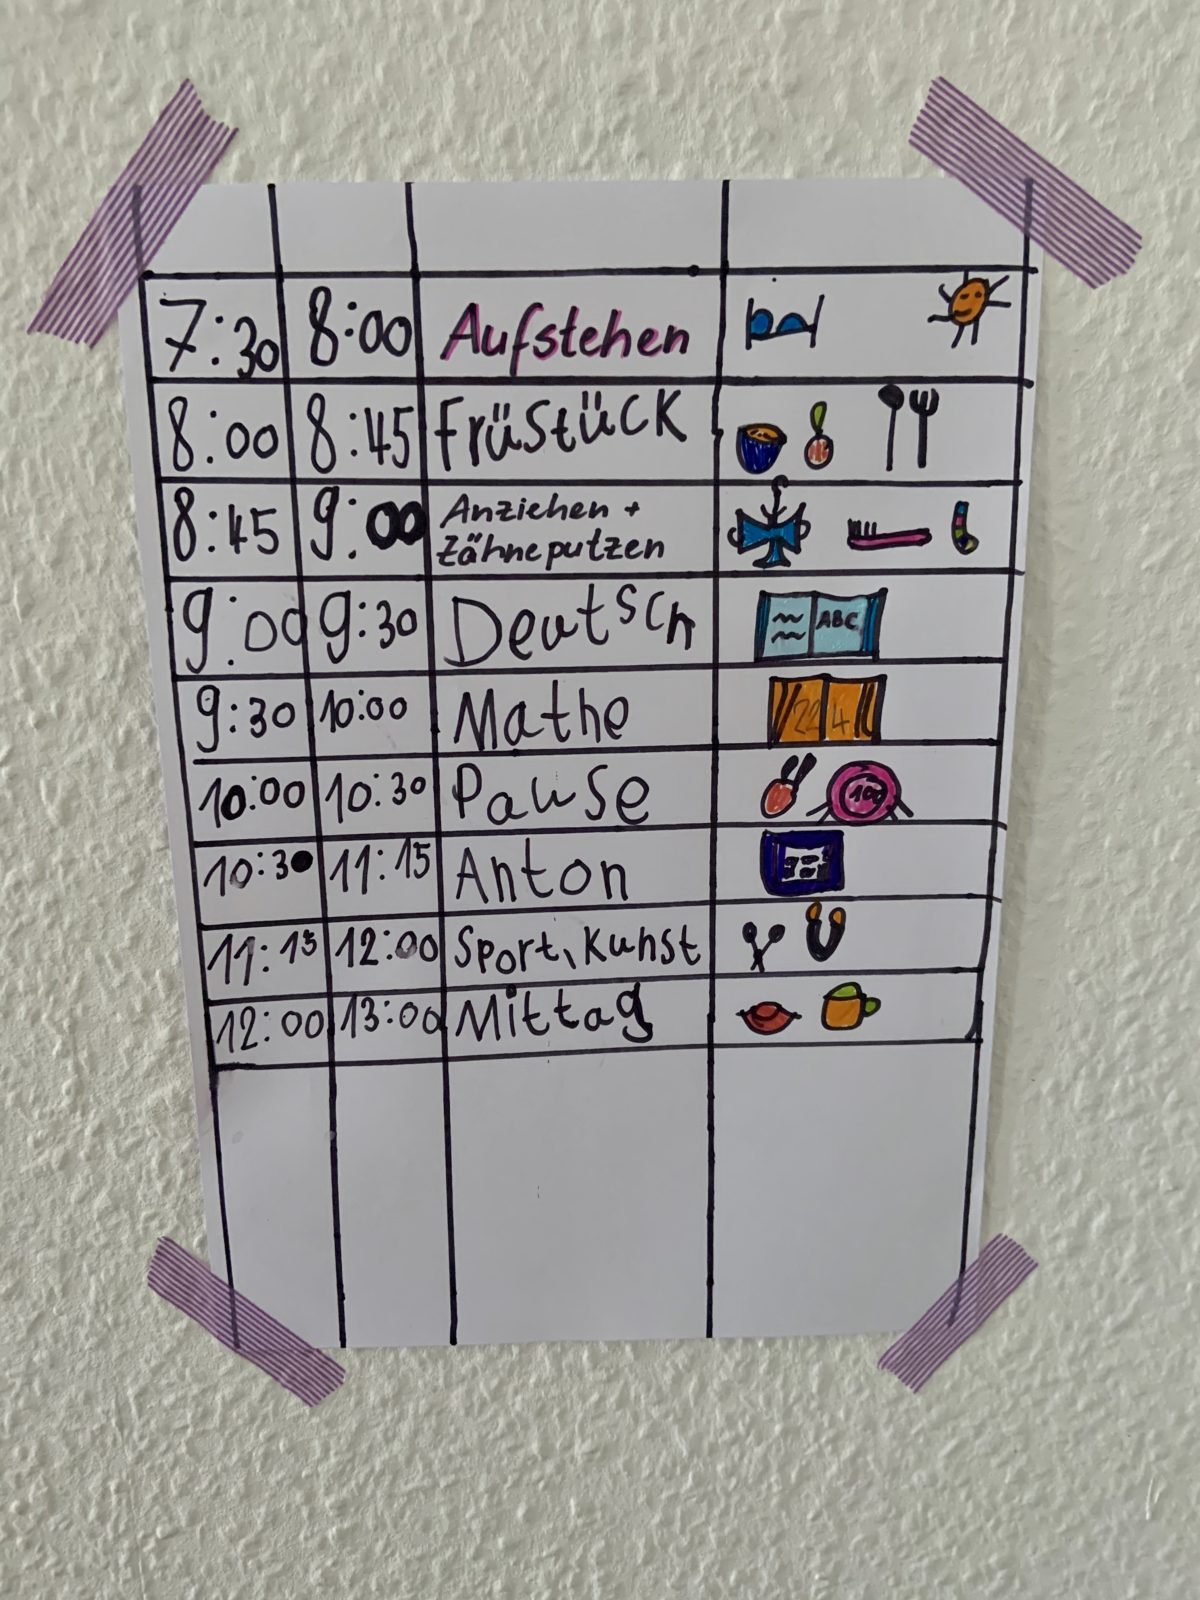 7:30 8:00 Aufstehen
8:00 8:45 Früstück
8:45 9:00 Anziehen +
Zähneputzen
9:00 9:30 Deutsch
ABC
9:30 10:00 Mathe
10:00 10:30 Pause
100
10:30 11:15 Anton
11:15 12:00 Sport, Kunst
12:00 13:00 Mittag